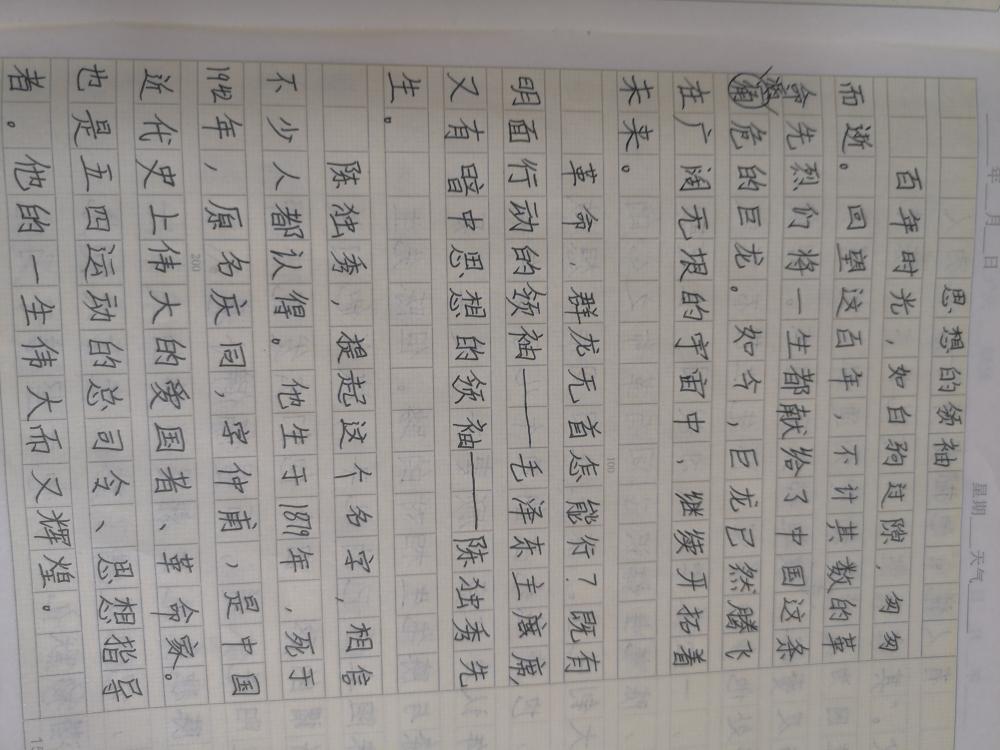 年 月 日 星期 天气
思想的领袖
百年时光，如白驹过隙，匆匆
而逝。回望这百年，不计其数的革
命先烈们将一生都献给了中国这条
危的巨龙。如今，巨龙已然腾飞
在广阔无垠的宇宙中，继续开拓着
未来。
100
革命，群龙无首怎能行？既有
明面行动的领袖——毛泽东主席，
又有暗中思想的领袖——陈独秀先
生。
陈独秀，提起这个名字，相信
不少人都认得。他生于1879年，死于
1942年，原名庆同，字仲甫，是中国
200
近代史上伟大的爱国者、革命家。
也是五四运动的总司令、思想指导
者。他的一生伟大而又辉煌。